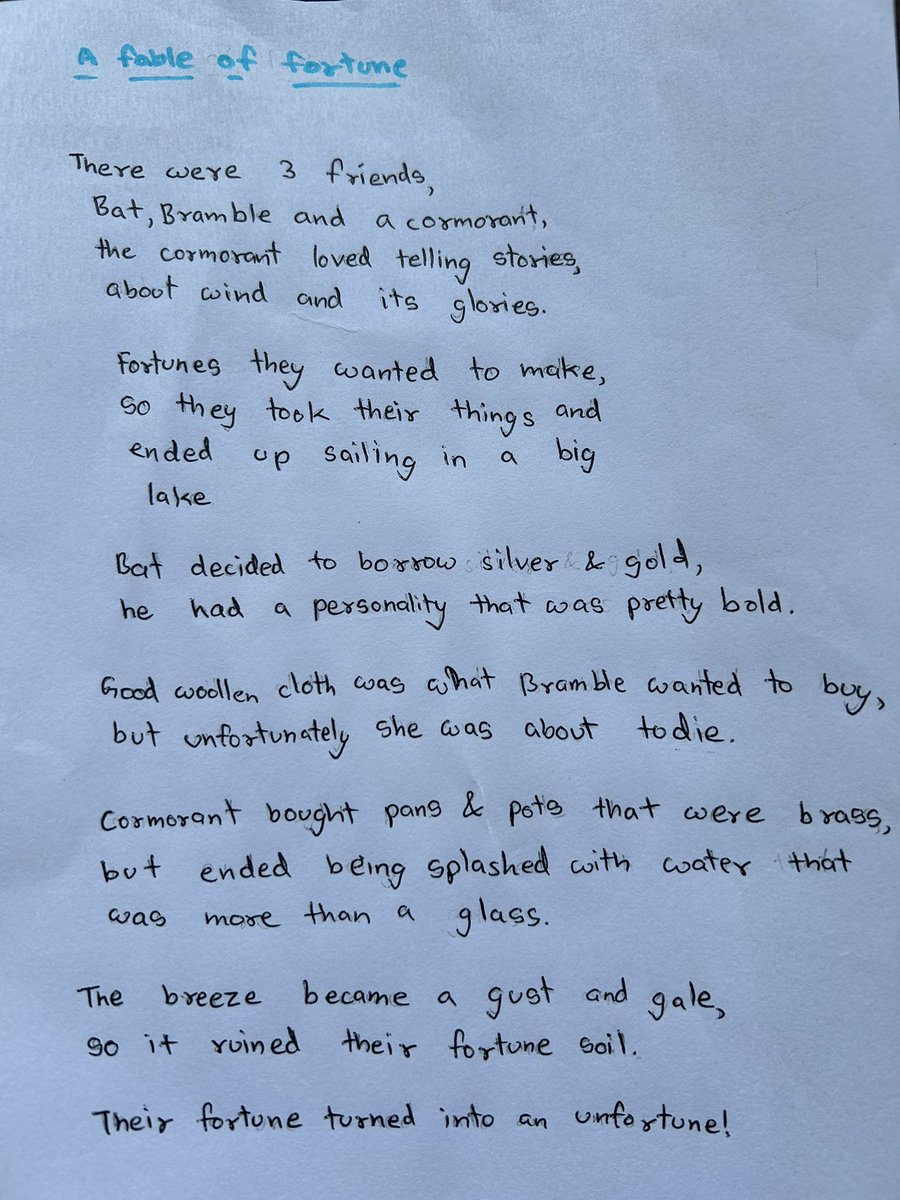 A fable of fortune
There were 3 friends,
Bat, Bramble and a cormorant,
the cormorant loved telling stories,
about wind and its glories.
Fortunes they wanted to make,
so they took their things and
ended up sailing in a big
lake
Bat decided to borrow silver & gold,
he had a personality that was pretty bold.
Good woollen cloth was what Bramble wanted to buy,
but unfortunately she was about to die.
Cormorant bought pans & pots that were brass,
but ended being splashed with water that
was more than a glass.
The breeze became a gust and gale,
so it ruined their fortune soil.
Their fortune turned into an unfortune!